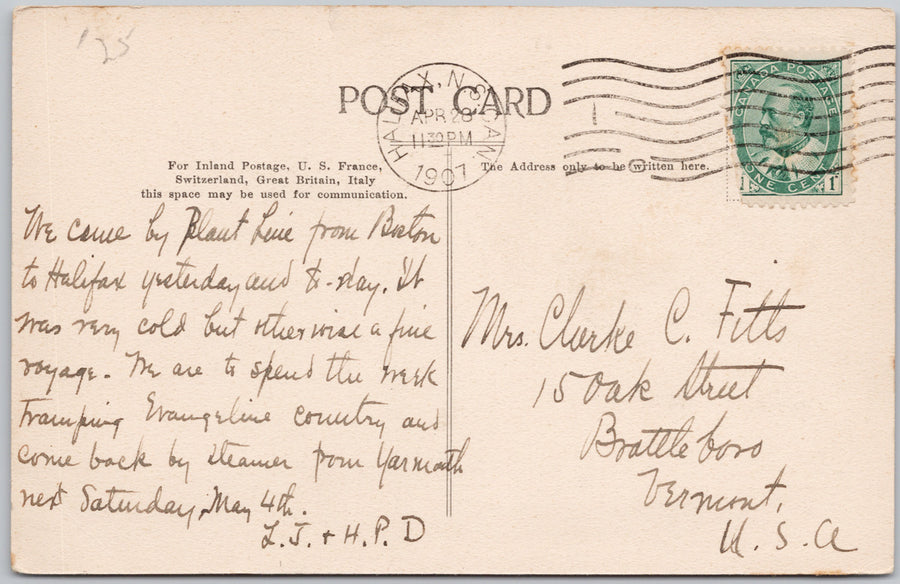 125
POST CARD
HALIFAX, N.S. CAN.
APR 28
11 30 PM
1907
CANADA POSTAGE
1 ONE CENT 1
For Inland Postage, U. S. France,
Switzerland, Great Britain, Italy
this space may be used for communication.
The Address only to be written here.
We came by Plant Line from Boston
to Halifax yesterday and to-day. It
was very cold but otherwise a fine
voyage. We are to spend the week
tramping Evangeline country and
come back by steamer from Yarmouth
next Saturday, May 4th.
L.J. + H.P.D
Mrs. Clarke C. Fitts
15 Oak Street
Brattleboro
Vermont,
U.S.A